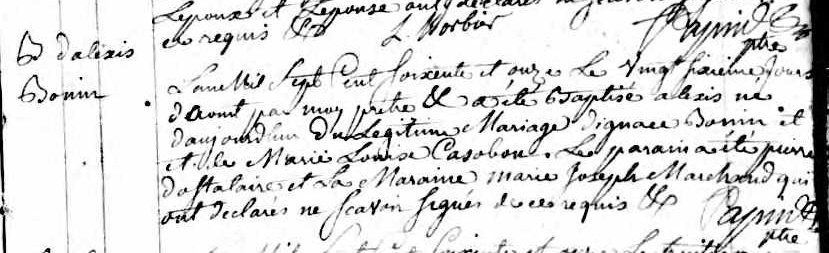 Lepoux et Lepouse ont declarés
ce requis &c L. Morbier Papin Ptre
B d alexis
Bonin
Lan Mil Sept Cent soixente et onze Le vingt sixieme Jours
d'aout par moy prêtre &c a été Baptisé alexis né
daujourdhui du Legitime Mariage dignace Bonin et
et de Marie Louise Casobon. Le parain a été pierre
dostalaire et La Maraine marie Joseph Marchand qui
ont declarés ne scavoir signés de ce requis &c Papin
ptre
soixente et onze Le